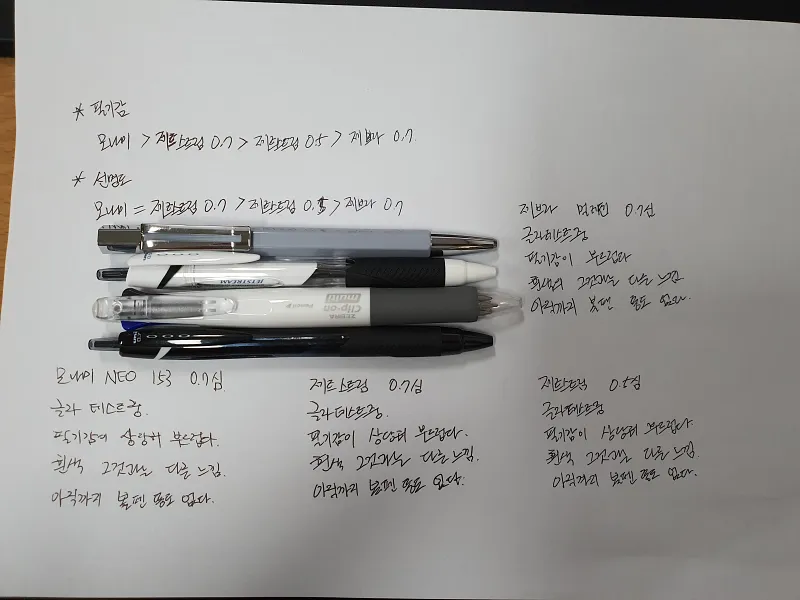 * 필기감
모나미 > 제트스트림 0.7 > 제트스트림 0.5 > 제브라 0.7
* 선명도
모나미 = 제트스트림 0.7 > 제트스트림 0.5 > 제브라 0.7
제브라 멀티펜 0.7심
글라테스트중
필기감이 부드럽다
흰색 그것과는 다른 느낌
아직까지 볼펜 똥도 없다.
JETSTREAM
ZEBRA
Clip-on
multi
모나미 NEO 153 0.7심
글라 테스트중.
필기감이 상당히 부드럽다.
흰색 그것과는 다른 느낌.
아직까지 볼펜 똥도 없다.
제트스트림 0.7심
글라테스트중.
필기감이 상당히 부드럽다.
흰색 그것과는 다른 느낌.
아직까지 볼펜 똥도 없다.
제트스트림 0.5심
글라테스트중
필기감이 상당히 부드럽다.
흰색 그것과는 다른 느낌.
아직까지 볼펜 똥도 없다.